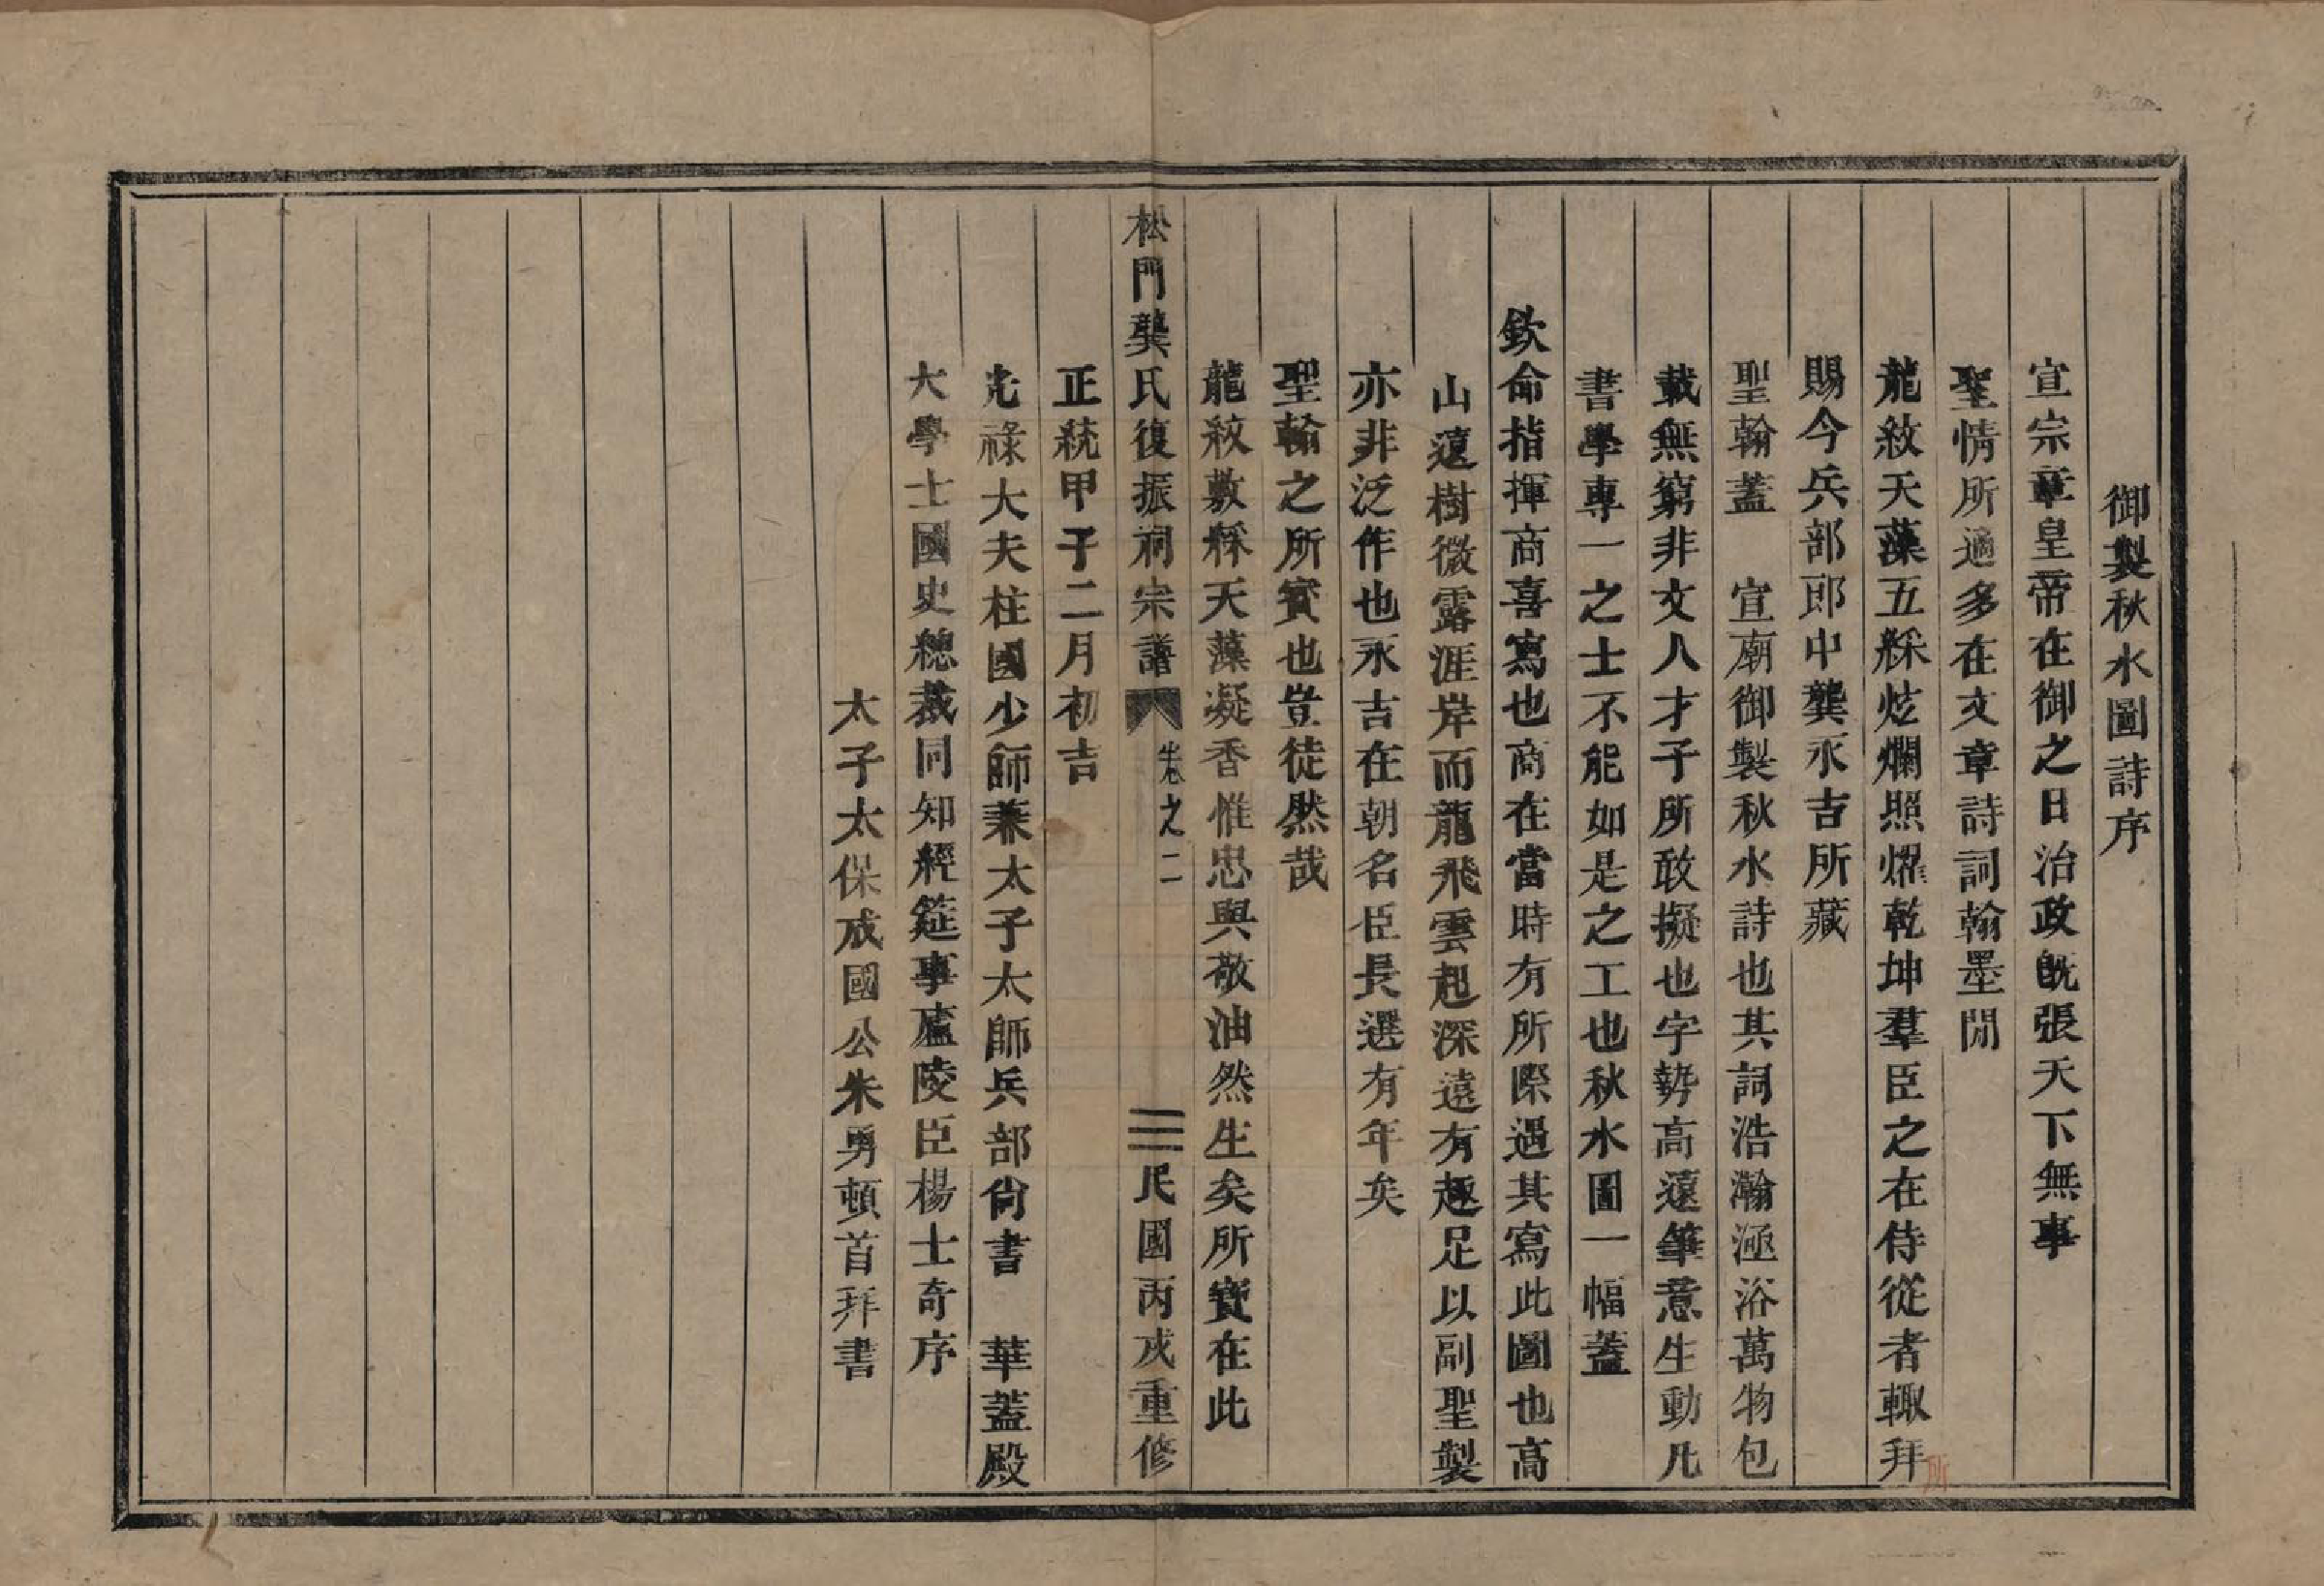 御製秋水圖詩序
宣宗章皇帝在御之日治政旣張天下無事
聖情所適多在文章詩詞翰墨閒
龍紋天藻五綵炫爛照燿乾坤羣臣之在侍從者輙拜
所
賜今兵部郎中龔永吉所藏
聖翰蓋 宣廟御製秋水詩也其詞浩瀚涵浴萬物包
載無窮非文人才子所敢擬也字勢高遠筆意生動凡
書學專一之士不能如是之工也秋水圖一幅蓋
欽命指揮商喜寫也商在當時有所際遇其寫此圖也高
山遠樹微露涯岸而龍飛雲起深遠有趣足以副聖製
亦非泛作也永吉在朝名臣長選有年矣
聖翰之所寳也豈徒然哉
龍紋敷綵天藻凝香惟忠與敬油然生矣所寳在此
松門龔氏復振祠宗譜 卷之二 三 民國丙戌重修
正統甲子二月初吉
光祿大夫柱國少師兼太子太師兵部尙書 華蓋殿
大學士國史總裁同知經筵事廬陵臣楊士奇序
太子太保成國公朱勇頓首拜書